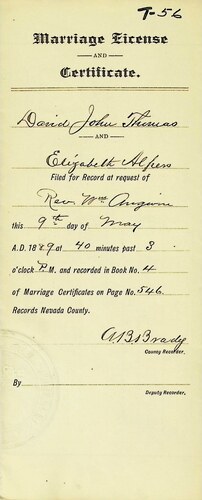 T-56
Marriage License
AND
Certificate.
David John Thomas
AND
Elizabeth Alpers
Filed for Record at request of
Rev. Wm Angwin
this 9th day of May
A.D. 1889 at 40 minutes past 3
o'clock P.M. and recorded in Book No. 4
of Marriage Certificates on Page No. 546.
Records Nevada County.
A B Brady
County Recorder.
By
Deputy Recorder.